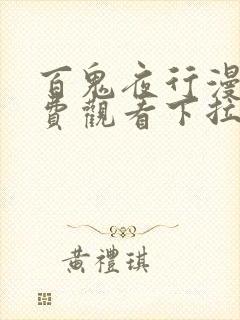 百鬼夜行漫
費觀看下拉
黃禮琪